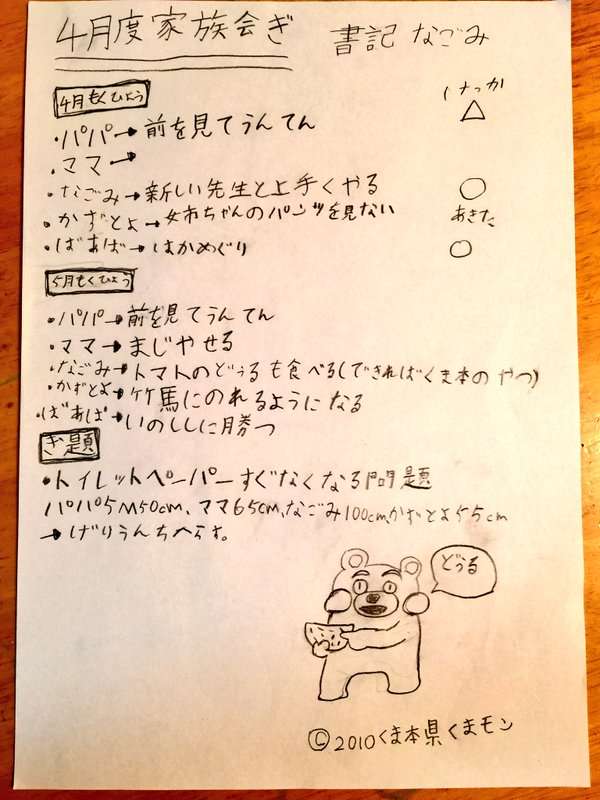 4月度家族会ぎ 書記 なごみ
4月もくひょう けっか
・パパ→前を見てうんてん △
・ママ→
・なごみ→新しい先生と上手くやる ○
・かずとよ→姉ちゃんのパンツを見ない あきた
・ばあば→はかめぐり ○
5月もくひょう
・パパ→前を見てうんてん
・ママ→まじやせる
・なごみ→トマトのどぅるも食べる(できればくま本のやつ)
・かずとよ→竹馬にのれるようになる
・ばあば→いのししに勝つ
ぎ題
・トイレットペーパーすぐなくなる問題
パパ5M50cm、ママ65cm、なごみ100cm、かずとよ55cm
→げりうんちへらす。
どぅる
©2010くま本県くまモン